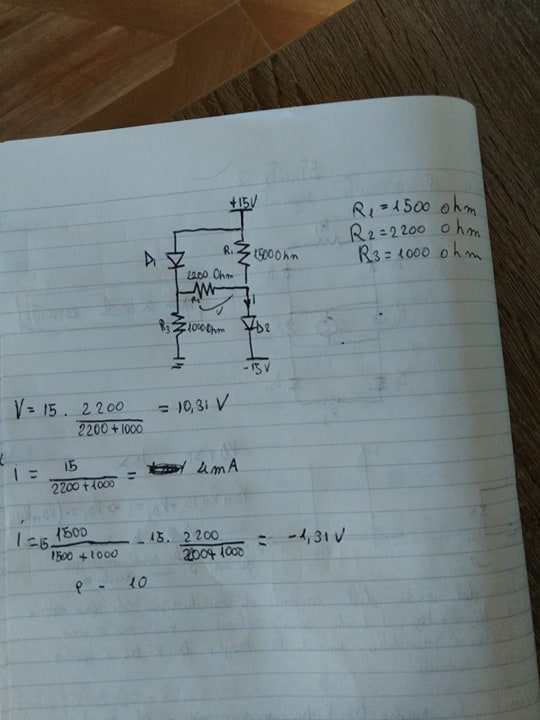 +15V
R1 = 1500 ohm
R2 = 2200 ohm
R3 = 1000 ohm
D1
R1
1500 Ohm
2200 Ohm
R2
V
I
R3
1000 Ohm
D2
-15V
V = 15 . 2200 / 2200 + 1000 = 10,31 V
I = 15 / 2200 + 1000 = 4mA
I = 15 1500 / 1500 + 1000 - 15. 2200 / 2200 + 1000 = -1,31 V
10